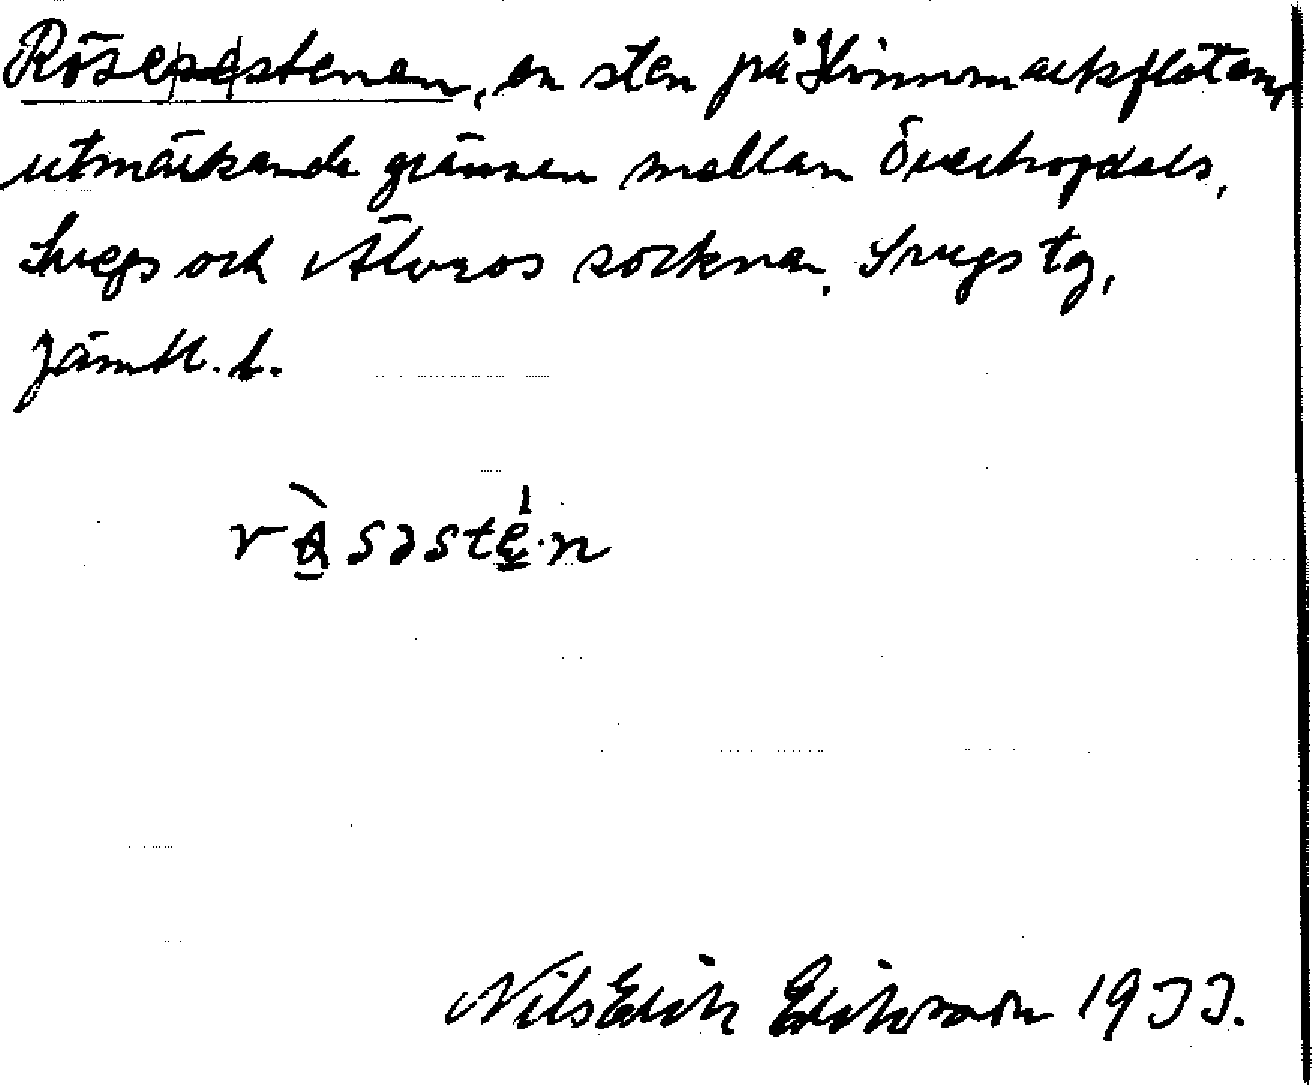 Rösestenen, en sten på Hinnmarksflöten,
utmärkande gränsen mellan Överhogdals,
Svegs och Älvros socknar, Svegs tg,
Jämtl. l.
Nils Erik Eriksson 1933.